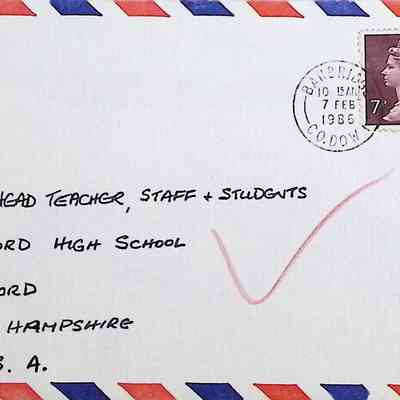 BANBRIDGE
10 15AM
7 FEB
1986
CO. DOWN
7
HEAD TEACHER, STAFF + STUDENTS
ORD HIGH SCHOOL
ORD
HAMPSHIRE
S. A.